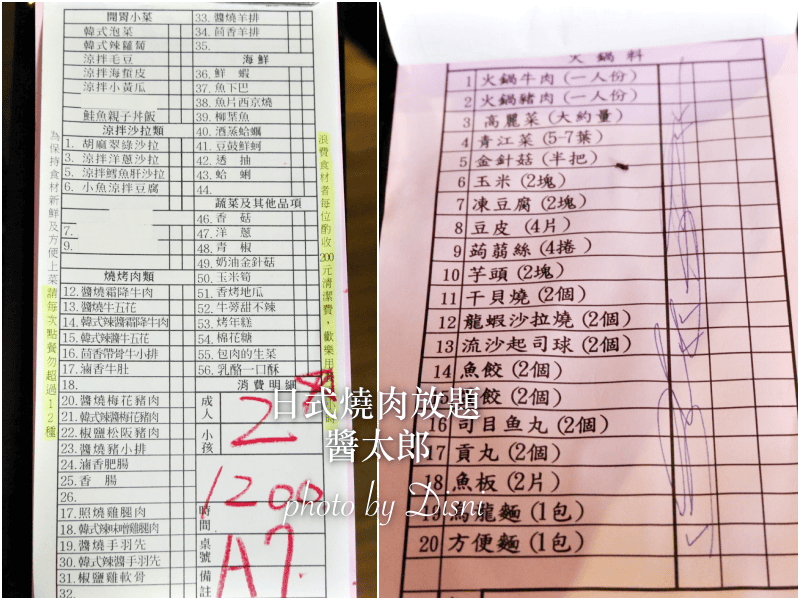 開胃小菜
韓式泡菜
韓式辣蘿蔔
涼拌毛豆
涼拌海蜇皮
涼拌小黃瓜
鮭魚親子丼飯
涼拌沙拉類
1. 胡麻翠綠沙拉
3. 涼拌洋蔥沙拉
5. 涼拌鱈魚肝沙拉
6. 小魚涼拌豆腐
7.
9.
燒烤肉類
12. 醬燒霜降牛肉
13. 醬燒牛五花
14. 韓式辣醬霜降牛肉
15. 韓式辣醬牛五花
16. 茴香帶骨牛小排
17. 滷香牛肚
18.
20. 醬燒梅花豬肉
21. 韓式辣醬梅花豬肉
22. 椒鹽松阪豬肉
23. 醬燒豬小排
24. 滷香肥腸
25. 香腸
26.
17. 照燒雞腿肉
18. 韓式辣味噌雞腿肉
19. 醬燒手羽先
30. 韓式辣醬手羽先
31. 椒鹽雞軟骨
32.
33. 醬燒羊排
34. 茴香羊排
35.
海鮮
36. 鮮蝦
37. 魚下巴
38. 魚片西京燒
39. 柳葉魚
40. 酒蒸蛤蠣
41. 豆鼓鮮蚵
42. 透抽
43. 蛤蜊
44.
蔬菜及其他品項
46. 香菇
47. 洋蔥
48. 青椒
49. 奶油金針菇
50. 玉米筍
51. 香烤地瓜
52. 牛蒡甜不辣
53. 烤年糕
54. 棉花糖
55. 包肉的生菜
56. 乳酪一口酥
消費明細
成人
2
小孩
1200
時間
桌號
A7
備註
為保持食材新鮮及方便上菜請每次點餐勿超過12種
浪費食材者每位酌收200元清潔費，歡樂用
小時
火鍋料
1 火鍋牛肉 (一人份)
2 火鍋豬肉 (一人份)
3 高麗菜 (大約量)
4 青江菜 (5-7葉)
5 金針菇 (半把)
6 玉米 (2塊)
7 凍豆腐 (2塊)
8 豆皮 (4片)
9 蒟蒻絲 (4捲)
10 芋頭 (2塊)
11 干貝燒 (2個)
12 龍蝦沙拉燒 (2個)
13 流沙起司球 (2個)
14 魚餃 (2個)
餃 (2個)
16 司目魚丸 (2個)
17 貢丸 (2個)
18 魚板 (2片)
19 烏龍麵 (1包)
20 方便麵 (1包)
日式燒肉放題
醬太郎
photo by Disni